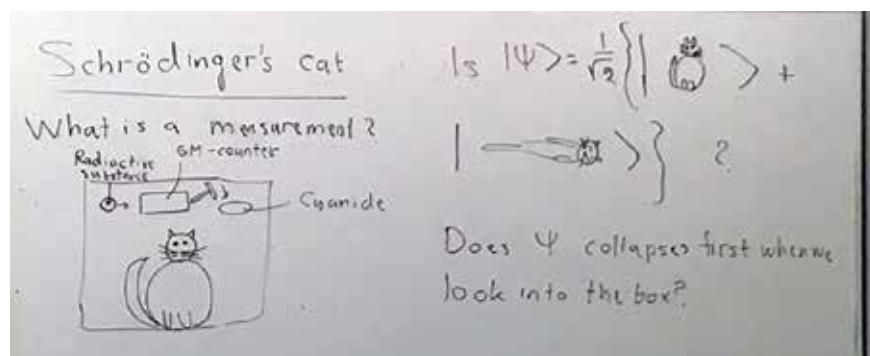 Schrödinger's cat
What is a measurement?
Radioactive
substance
GM-counter
Cyanide
Is |Ψ> = 1/√2 { | > +
| > } ?
Does Ψ collapses first when we
look into the box?